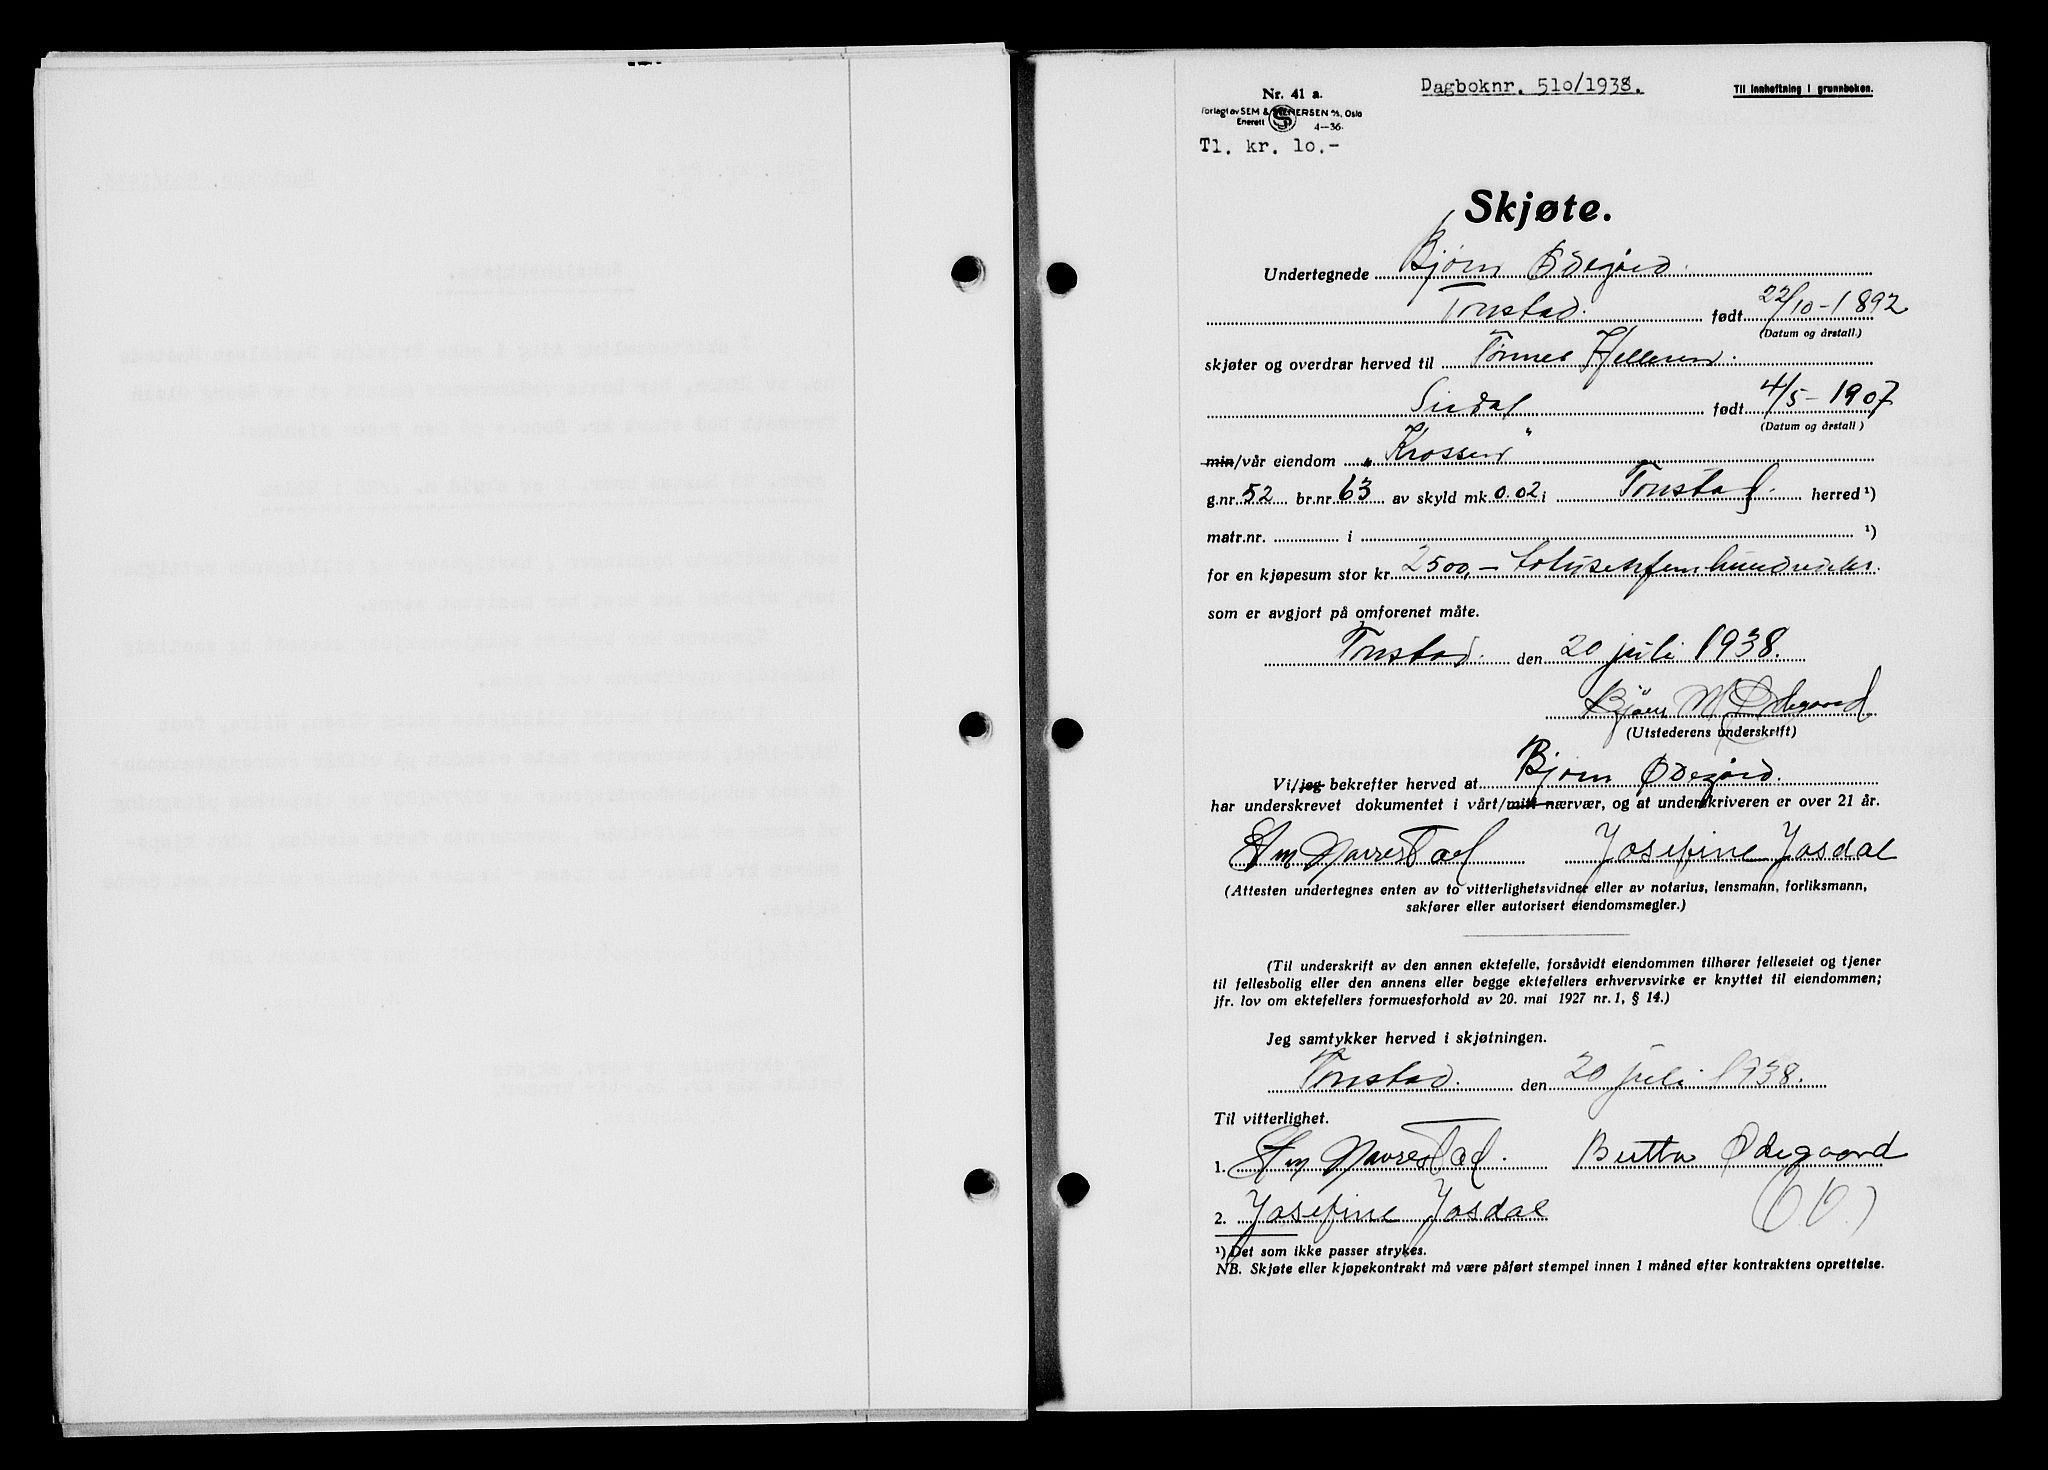 Nr. 41 a.
Dagboknr. 510/1938.
Til innheftning i grunnboken.
Forlagt av SEM & STENERSEN A/S, Oslo
Enerett 4—36.
Tl. kr. 10.-
Skjøte.
Undertegnede Bjørn Ødegård.
Tonstad. født 22/10-1892
(Datum og årstall.)
skjøter og overdrar herved til Tønnes Helleren.
Sirdal født 4/5-1907
(Datum og årstall)
min/vår eiendom „Krossen"
g.nr. 52 br.nr. 63 av skyld mk 0.02 i Tonstad. herred ¹)
matr.nr. i ¹)
for en kjøpesum stor kr 2500,-
som er avgjort på omforenet måte.
Tonstad. den 20 juli 1938.
Bjørn M Ødegaard
(Utstederens underskrift)
Vi/jeg bekrefter herved at Bjørn Ødegård.
har underskrevet dokumentet i vårt/mitt nærvær, og at underskriveren er over 21 år.
Navrestad Josefine Josdal
(Attesten undertegnes enten av to vitterlighetsvidner eller av notarius, lensmann, forliksmann,
sakfører eller autorisert eiendomsmegler.)
(Til underskrift av den annen ektefelle, forsåvidt eiendommen tilhører felleseiet og tjener
til fellesbolig eller den annens eller begge ektefellers erhvervsvirke er knyttet til eiendommen;
jfr. lov om ektefellers formuesforhold av 20. mai 1927 nr. 1, § 14.)
Jeg samtykker herved i skjøtningen.
Tonstad. den 20 juli 1938.
Til vitterlighet.
1. Navrestad. Berta Ødegaard
2. Josefine Josdal
¹) Det som ikke passer strykes.
NB. Skjøte eller kjøpekontrakt må være påført stempel innen 1 måned efter kontraktens oprettelse.